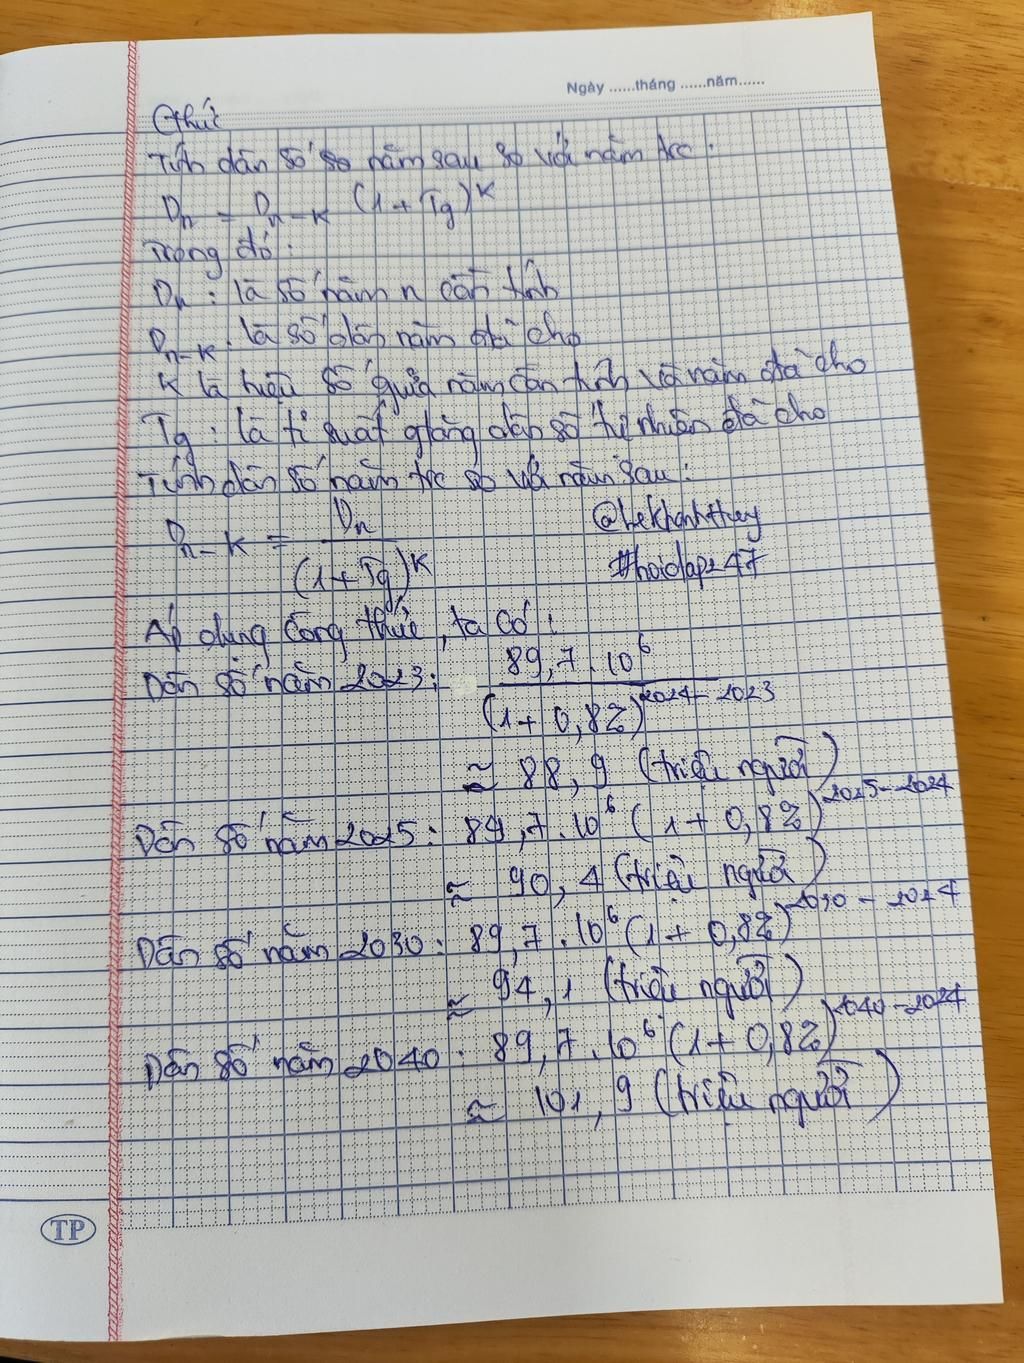 Ngày ......tháng ......năm......
Cthức
Tính dân số số năm sau so với năm trc :
Dn = Dn-K (1 + Tg)^K
Trong đó :
Dn : là số năm n cần tính
Dn-K : là số dân năm đã cho
K là hiệu số giữa năm cần tính và năm đã cho
Tg : là tỉ suất gtăng dân số tự nhiên đã cho
Tính dân số năm trc so với năm sau :
Dn-K = Dn / (1 + Tg)^K
@lekhanhthuy
#hoidap247
Áp dụng công thức, ta có :
Dân số năm 2023 : 89,7 . 10^6 / (1 + 0,8%)^2024-2023
≈ 88,9 (triệu người)
Dân số năm 2025 : 89,7 . 10^6 (1 + 0,8%)^2025-2024
≈ 90,4 (triệu người)
Dân số năm 2030 : 89,7 . 10^6 (1 + 0,8%)^2030-2024
≈ 94,1 (triệu người)
Dân số năm 2040 : 89,7 . 10^6 (1 + 0,8%)^2040-2024
≈ 101,9 (triệu người)
TP